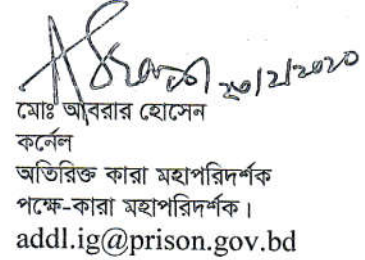 ২০/২/২০২০
মোঃ আবরার হোসেন
কর্নেল
অতিরিক্ত কারা মহাপরিদর্শক
পক্ষে-কারা মহাপরিদর্শক।
addl.ig@prison.gov.bd